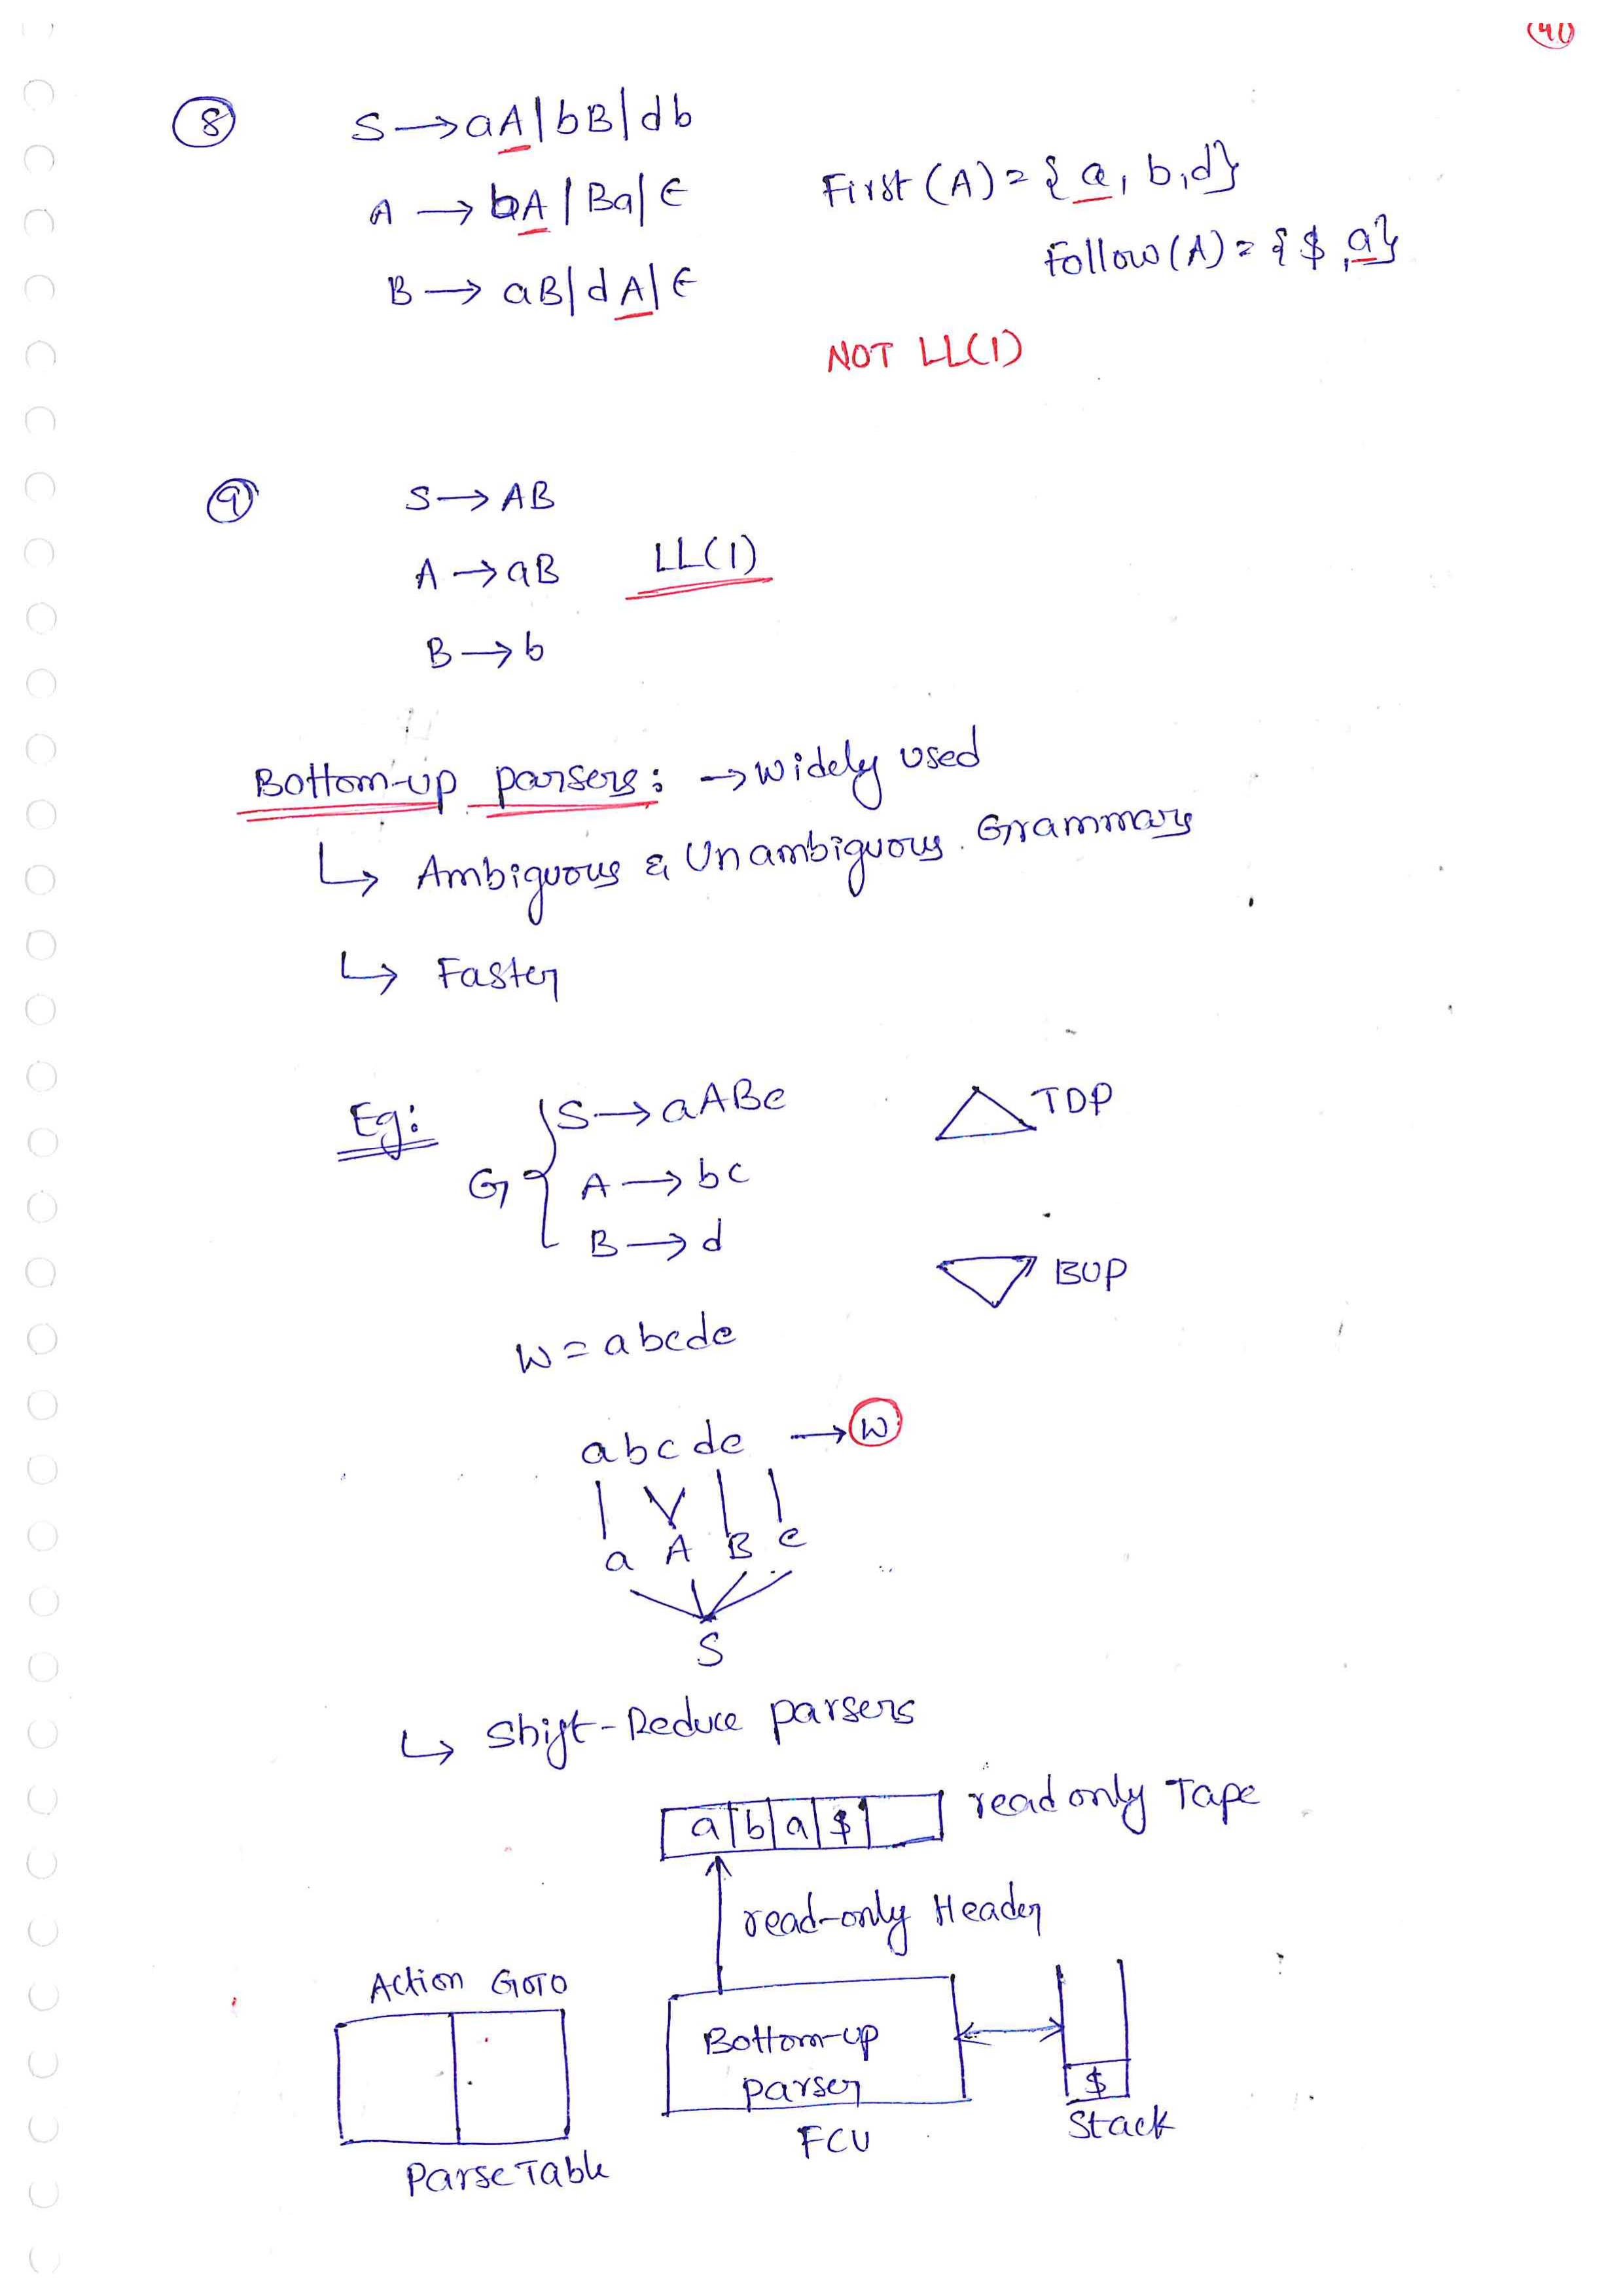 (41)
(8) S → aA | bB | db
A → bA | Ba | ∈ First (A) = {a, b, d}
Follow (A) = {$, a}
B → aB | dA | ∈
NOT LL(1)
(9) S → AB
A → aB LL(1)
B → b
Bottom-up parsers: → widely used
↳ Ambiguous & Unambiguous. Grammars
↳ Faster
Eg: G { S → aABe
A → bc
B → d
TDP
BUP
w = abcde
abcde → (w)
a A B e
S
↳ Shift-Reduce parsers
a | b | a | $ | read only Tape
read-only Header
Action GOTO
Bottom-up
parser
$
FCU
Stack
Parse Table